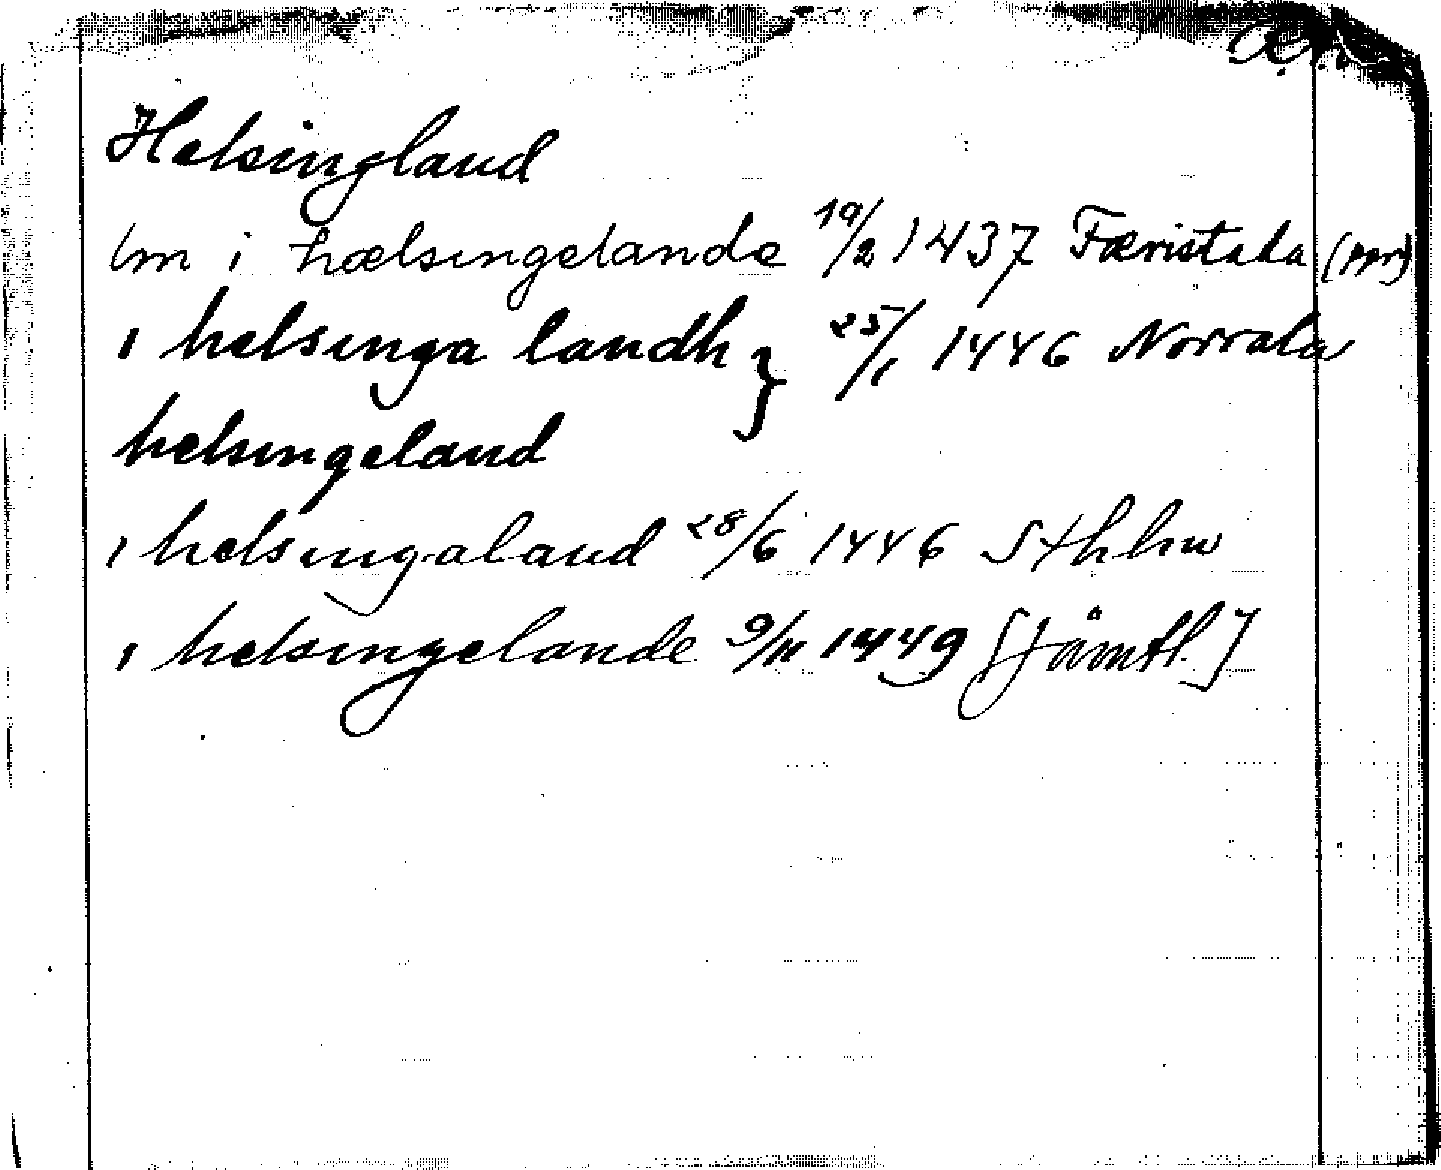 Helsingland
lm i hælsingelande 19/2 1437 Færistada (ppr)
i helsinga landh } 25/1 1446 Norrala
helsingeland
i helsingaland 28/6 1446 Sthlm
i helsingelande 9/11 1449 [Jämtl.]